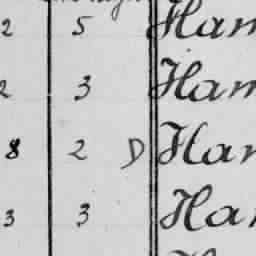 2 5 Ham
2 3 Ham
8 2 D Han
3 3 Ha